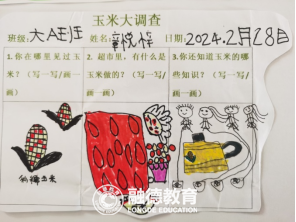 玉米大调查
班级：大A班 姓名： 日期：2024.2月28日
1.你在哪里见过玉米？（写一写/画一画）
2.超市里，有什么是玉米做的？（写一写/画一画）
3.你还知道玉米的哪些知识？（写一写/画一画）
融德教育
RONGDE EDUCATION